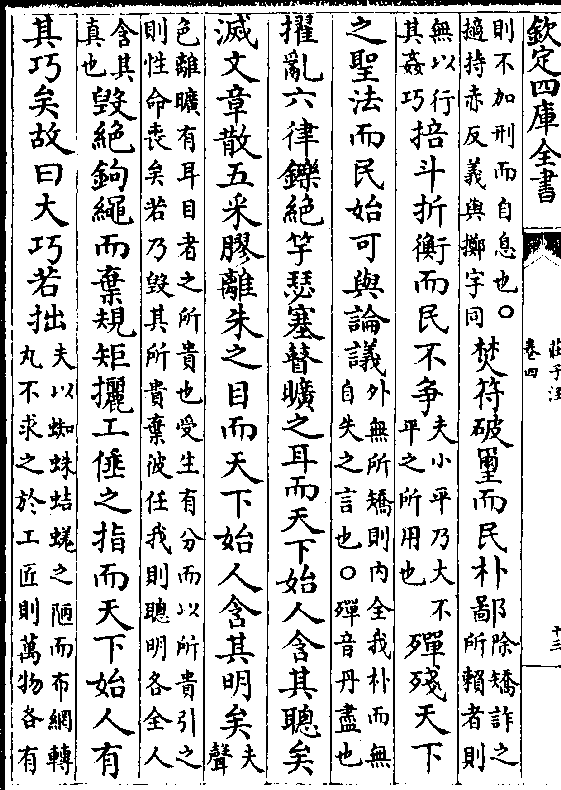 欽定四庫全書
莊子注
卷四
十三
則不加刑而自息也〇
擿持赤反義與擲字同
焚符破璽而民朴鄙
除矯詐之
所賴者則
無以行
其姦巧
掊斗折衡而民不争
夫小平乃大不
平之所用也
殫殘天下
之聖法而民始可與論議
外無所矯則内全我朴而無
自失之言也〇殫音丹盡也
擢亂六律鑠絶竽瑟塞瞽曠之耳而天下始人含其聰矣
滅文章散五采膠離朱之目而天下始人含其明矣
夫
聲
色離曠有耳目者之所貴也受生有分而以所貴引之
則性命喪矣若乃毁其所貴棄彼任我則聰明各全人
含其
真也
毁絶鉤繩而棄規矩攦工倕之指而天下始人有
其巧矣故曰大巧若拙
夫以蜘蛛蛣蜣之陋而布網轉
丸不求之於工匠則萬物各有